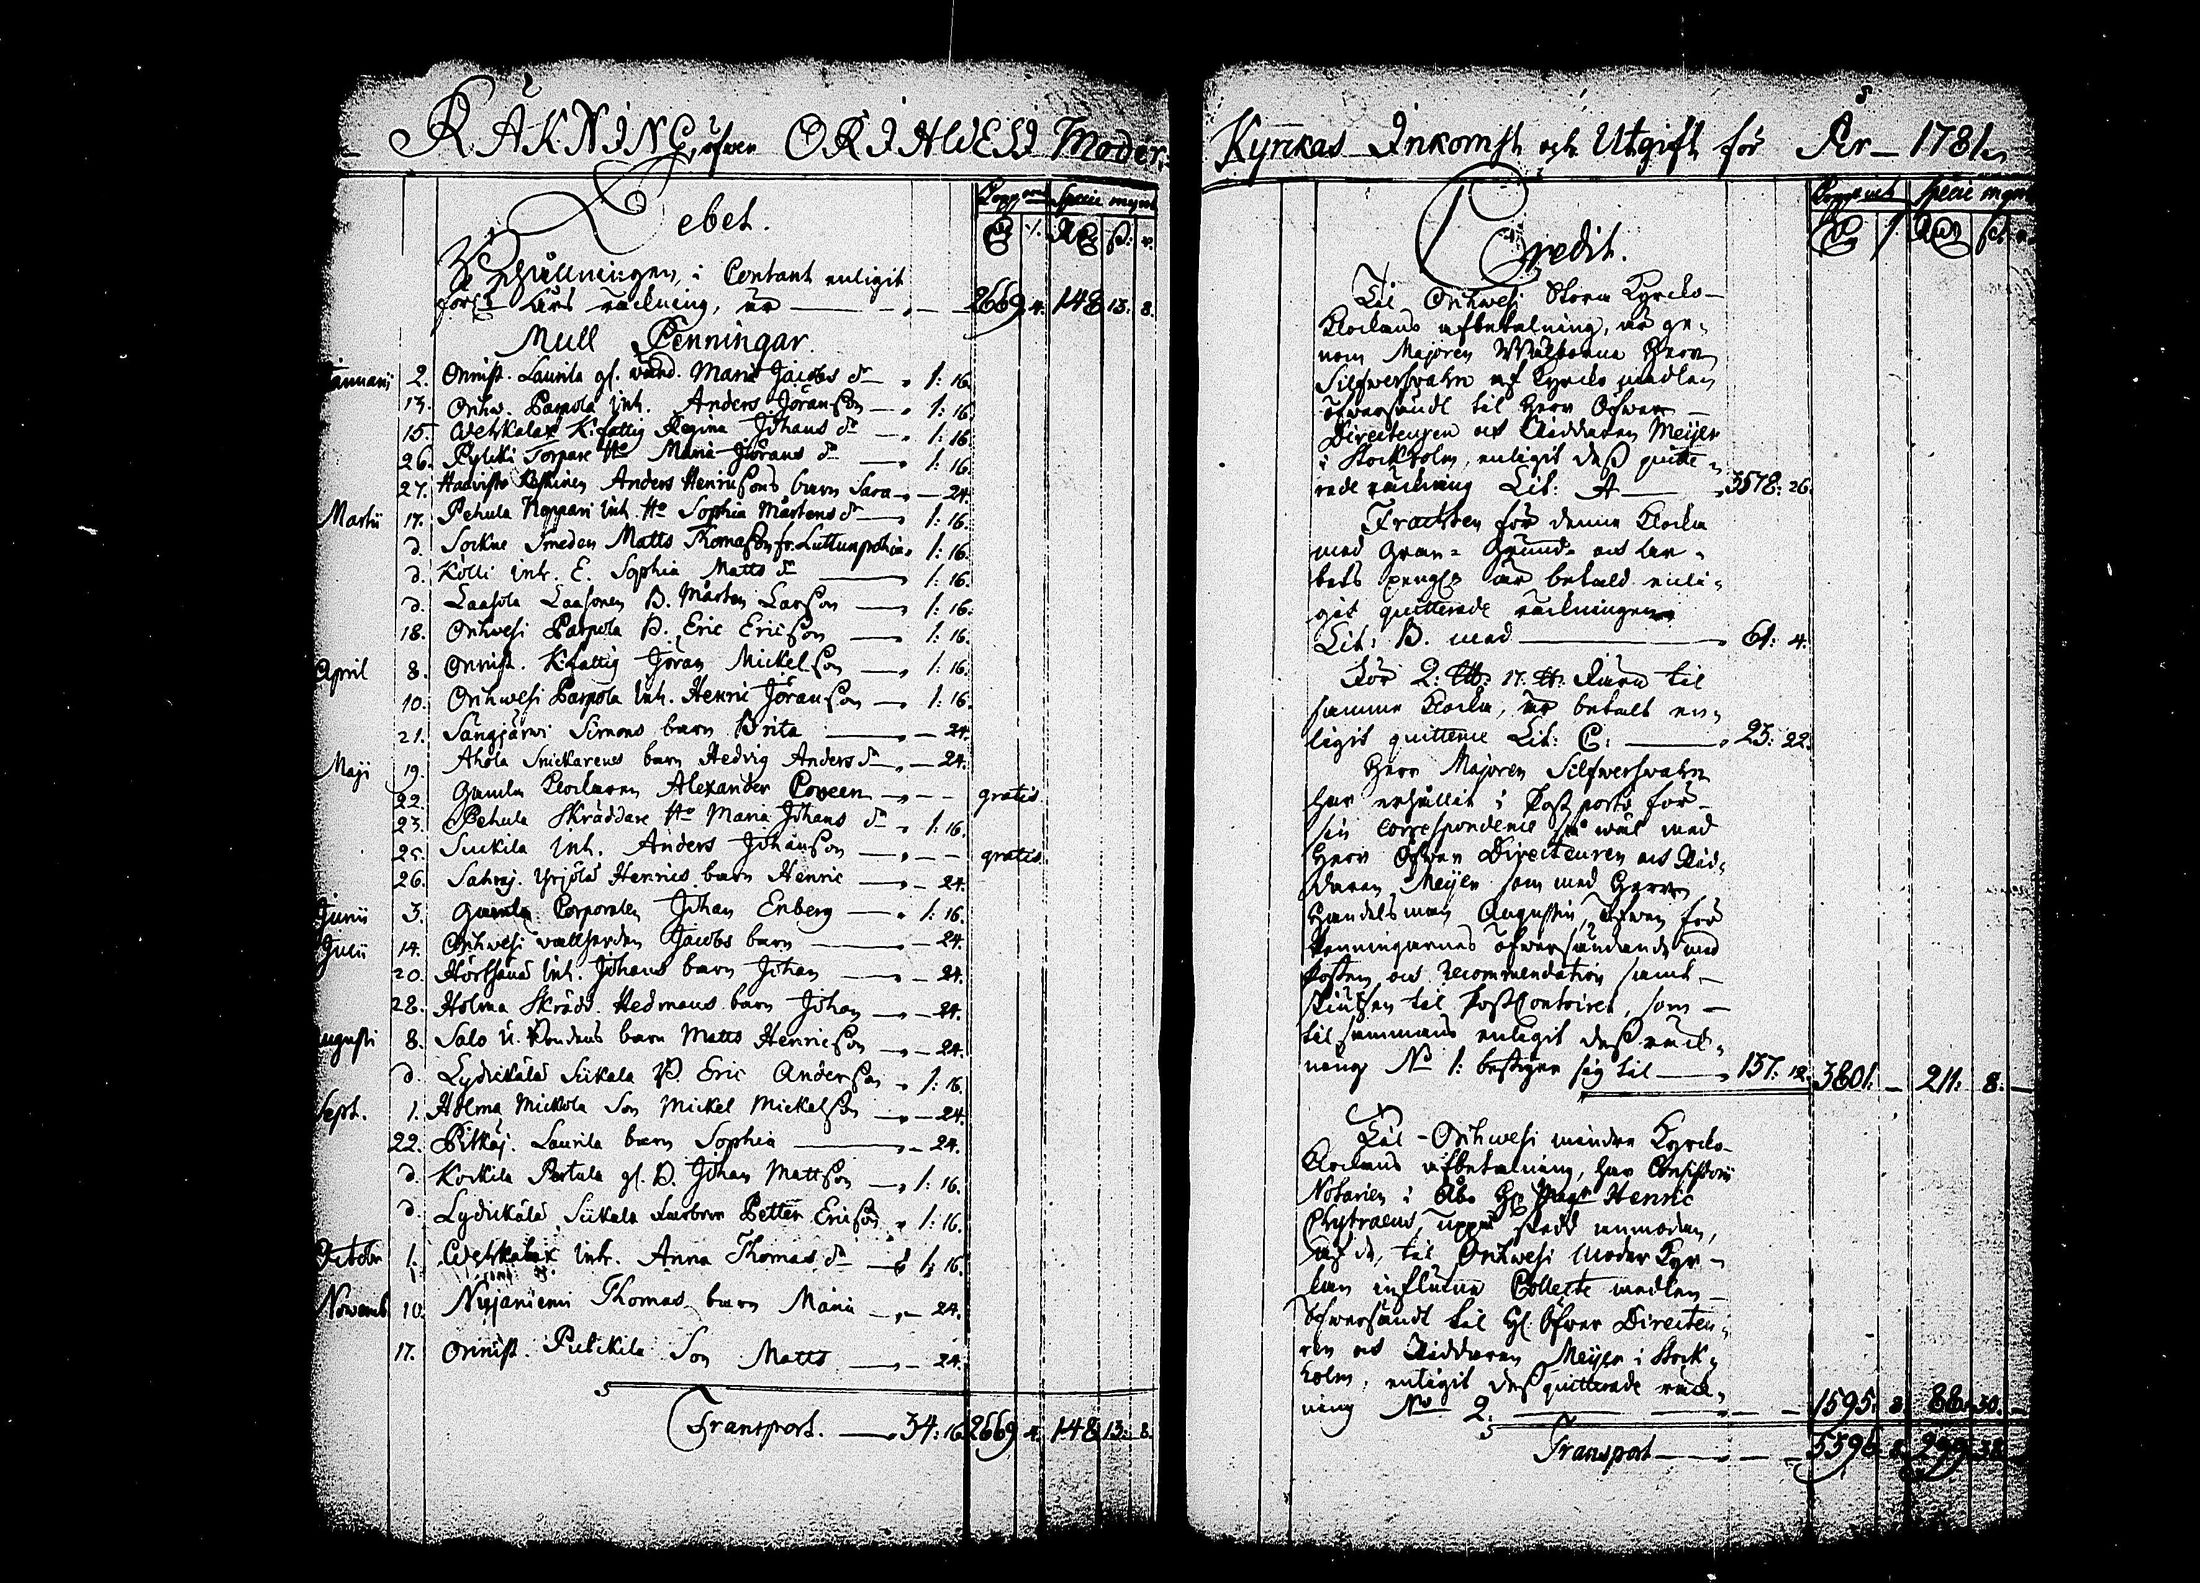 RÄKNING öfwer ORIHWESI Moder
Debet.
Kopp mt Specie mynt
Behållningen, i Contant enligit
förl: åhrs räckning, är — 2669. 4. 148. 13. 8.
Mull Penningar
Januarii 2. Onnist. Laurila gl. wärd. Maria Jacobs dr — 1: 16.
13. Orihw. Parpola inh. Anders Jöranson — 1: 16.
15. Wehkalax K: fattig Regina Johans dr — 1: 16.
26. Pylcki Torpare Ho Maria Jörans dr — 1: 16.
27. Haavisto Anders Henricsons barn Sara — 24.
Martii 17. Pehula Noppari inh. Ho Sophia Mårtens dr — 1: 16.
d. Sockne Smeden Matts Thomason fr. Luttunpohia 1: 16.
d. Kolli inh. E. Sophia Matts dr — 1: 16.
d. Laasola Laasonen B. Mårten Larson — 1: 16.
18. Orihwesi Parpola B. Eric Ericson — 1: 16.
April 8. Onnist. K: fattig Jöran Mickelson — 1: 16.
10. Orihwesi Parpola inh. Henric Jöranson — 1: 16.
21. Sängjärwi Simons barn Brita — 24.
Maji 19. Ahola Snickarens barn Hedvig Anders dr — 24.
22. Gamla Klockaren Alexander — gratis
23. Pehula Skräddare Ho Maria Johans dr 1: 16.
25. Suckila inh. Anders Johanson — gratis
26. Sahraj. Yrjölä Henrics barn Henric — 24.
Junii 3. Gamla Corporalen Johan Enberg — 1: 16.
Julii 14. Orihwesi wallherden Jacobs barn — 24.
20. inh. Johans barn Johan — 24.
28. Holma Skrädd. Hedmans barn Johan — 24.
Augusti 8. Salo barn Matts Henricson — 24.
d. Lydickälä Siikala B. Eric Anderson 1: 16.
Sept. 1. Holma Mickola Son Mickel Mickelson — 24.
22. Pitkäj. Laurila barn Sophia — 24.
d. Kockila Pertula gl. B. Johan Mattson — 1: 16.
d. Lydickälä Siikala Petter Ericson 1: 16.
October 1. Wehkalax inh. Anna Thomas dr — 1: 16.
Novemb 10. Nihjaniemi Thomas barn Maria — 24.
17. Onnist. Pulckila Son Matts — 24.
Transport. — 34: 16. 2669 4. 148 13. 8.
Kyrckas Inkomst och Utgift för År — 1781.
Credit.
Kopp: mt Specie mynt
Til Orihwesi Stora Kyrcko-
Klockans afbetalning, är ge-
nom Majoren Wälborne Herr
Silfwersvahn af Kyrcko medlen
öfwersändt til Herr Öfwer-
Directeuren och Riddaren Meijer
i Stockholm, enligit dess quitte-
rade räckning Lit: A — 3578: 26.
Frackten för denna Klocka
med Gran- Grund- och
bets är betald enli-
git quitterade räckningen
Lit: B. med — 61: 4.
För 2: 17. tiära til
samma Klocka, är betalt en-
ligit quittence Lit: C: — 23: 22.
Herr Majoren Silfwersvahn
har erhållit i Post porto för
sin Correspondence så wäl med
Herr Öfwer Directeuren och Rid-
daren Meijer som med Herr
Handelsman Augustin, äfwen för
Penningarnes öfwersändande med
Posten och recommendation samt
skiutsen til PostContoiret, som
tilsammans enligit dess räck-
ning No 1: bestiger sig til — 137: 12. 3801. — 211. 8. —
Til Orihwesi mindre Kyrcko-
Klockans afbetalning, har Consistorii
Notarien i Åbo Hr Magr Henric
Chytraeus, uppå skedd anmodan,
af de, til Orihwesi Moder Kyr-
kan influtna Collecte medlen
öfwersändt til Hr Öfwer Directeu-
ren och Riddaren Meijer i Stock-
holm, enligit dess quitterade räck-
ning No 2. — 1595. 8. 88. 30. —
Transport — 5396. 8. 299. 38.